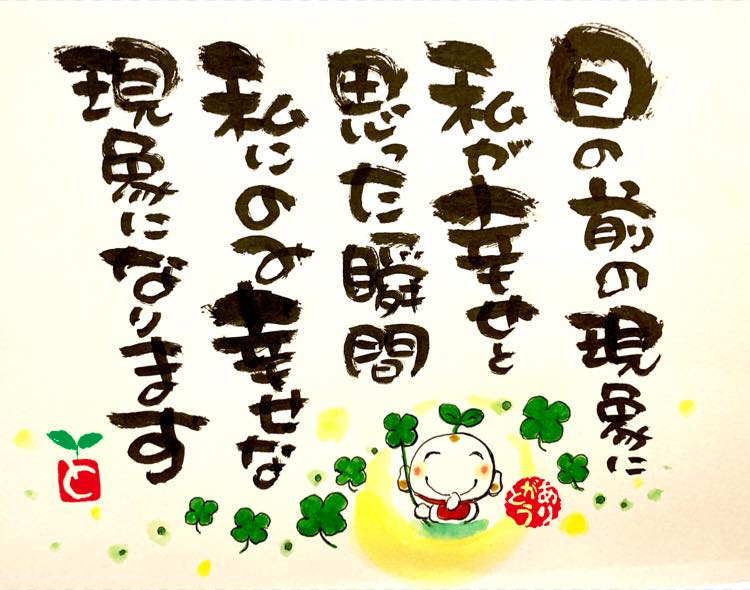 目の前の現象に
私が幸せと
思った瞬間
私にのみ幸せな
現象になります
ありがとう
と